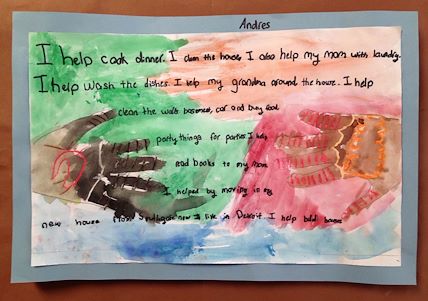 Andres
I help cook dinner. I clean the house I also help my mom with laundry.
I help wash the dishes. I help my grandma around the house. I help
clean the walls basement, car and buy food
party things for parties. I help
read books to my mom
I helped by moving in my
new house from now I live in Detroit. I help build